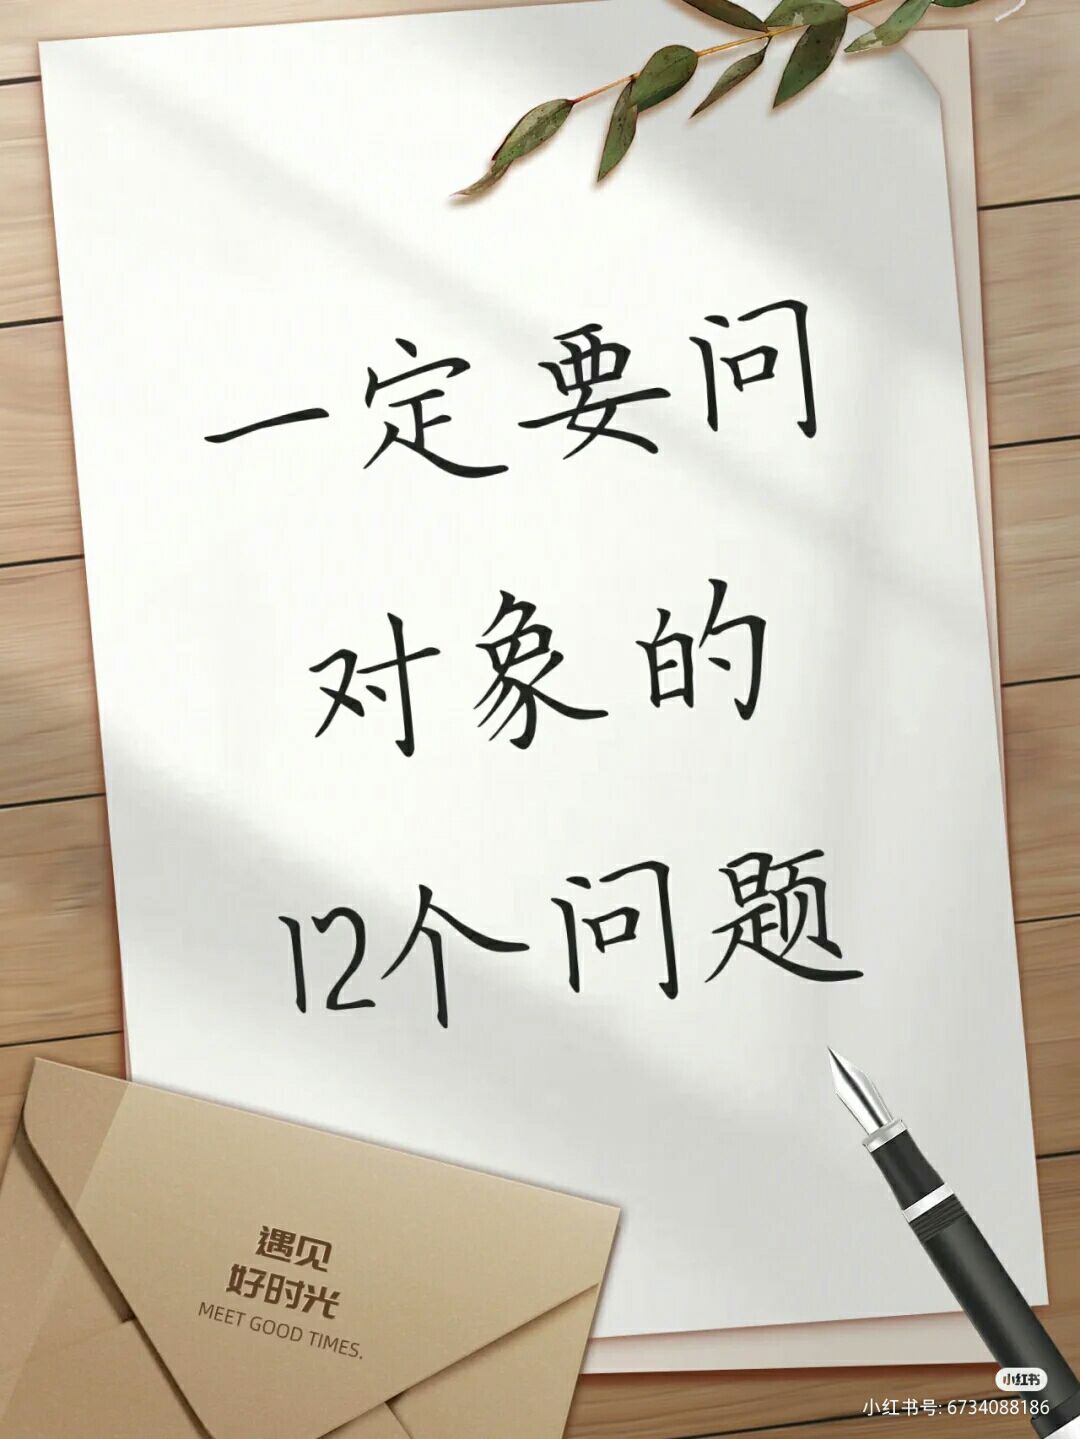 一定要问
对象的
12个问题
遇见
好时光
MEET GOOD TIMES.
小红书
小红书号: 6734088186